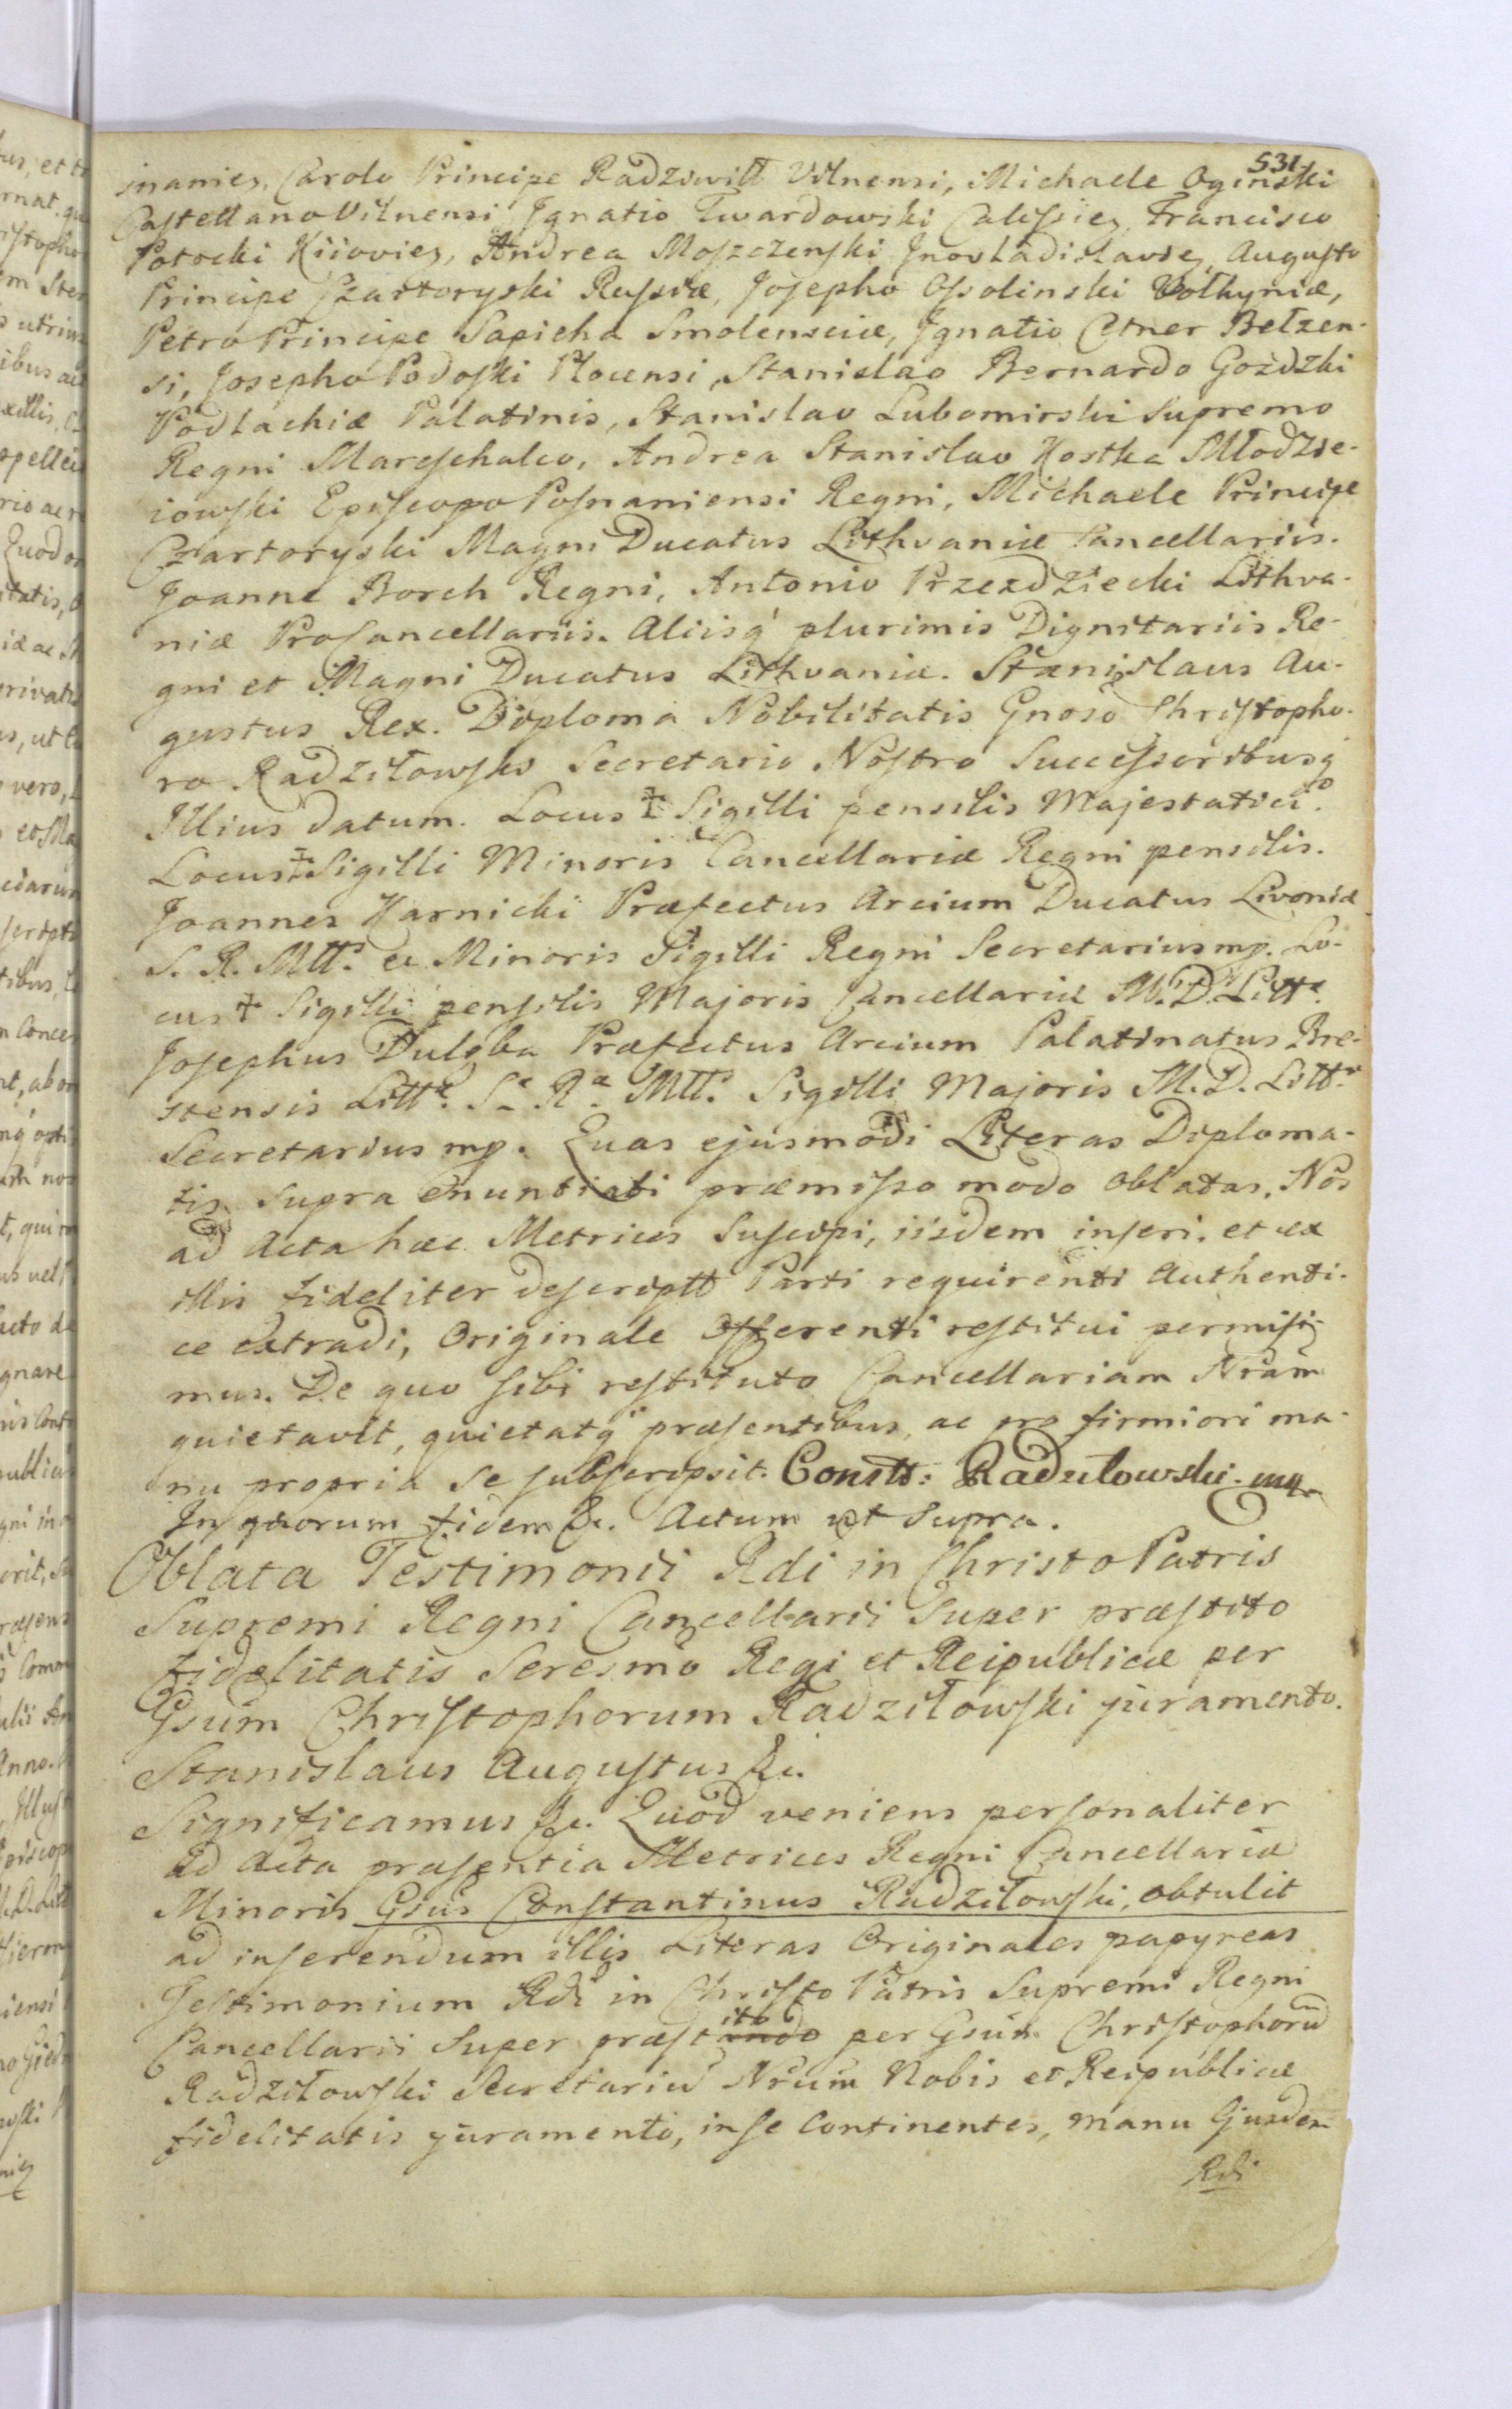 531
snanien, Carolo Principe Radziwill Vilnensi, Michaele Oginski
Castellano Vilnensi Ignatio Twardowski Calissien, Francisco
Potocki Kiiovien, Andrea Moszczenski Inovladislavien, Augusto
Principe Czartoryski Russiæ, Josepho Ossolinski Wolhyniæ,
Petro Principe Sapieha Smolensciæ, Ignatio Cetner Bełzen-
si, Josepho Podoski Plocensi, Stanislao Bernardo Gozdzki
Podlachiæ Palatinis, Stanislao Lubomirski Supremo
Regni Mareschalco, Andrea Stanislao Kostka Młodzie-
iowski Episcopo Posnaniensi Regni, Michaele Principe
Czartoryski Magni Ducatus Lithvaniæ Cancellariis.
Joanne Borch Regni, Antonio Przezdziecki Lithva-
niæ ProCancellariis. Aliisq́ plurimis Dignitariis Re-
gni et Magni Ducatus Lithvaniæ. Stanislaus Au-
gustus Rex. Diploma Nobilitatis Gnoso Christopho-
ro Radziłowski Secretario Nostro Successoribusq́
Illius datum. Locus ‡ Sigilli pensilis Majestatici.
Locus ‡ Sigilli Minoris Cancellariæ Regni pensilis.
Joannes Karnicki Præfectus Arcium Ducatus Livoniæ
S. R. Mtt. et Minoris Sigilli Regni Secretarius mp. Lo-
cus ‡ Sigilli pensilis Majoris Cancellariæ M. D. Litt.
Josephus Duleba Præfectus Arcium Palatinatus Bre-
stensis Litt. Sæ Ræ Mtt. Sigilli Majoris M. D. Litt.
Secretarius mp. Quas ejusmodi Literas Diploma-
tis supra enuntiati præmisso modo oblatas, Nos
ad Acta hæc Metrices Suscipi, iisdem inseri, et ex
illis fideliter descriptt Parti requirenti Authenti-
ce extradi, Originale Offerenti restitui permisi-
mus. De quo sibi restituto Cancellariam Nram
quietavit, quietatq́ præsentibus, ac pro firmiori ma-
nu propria se subscripsit. Constt: Radziłowski mp.
In quorum fidem &c. Actum ut Supra.
Oblata Testimonii Rdi in Christo Patris
Supremi Regni Cancellarii Super præstito
fidelitatis Seresmo Regi et Reipublicæ per
Gsum Christophorum Radziłowski juramento.
Stanislaus Augustus &c.
Significamus &c. Quod veniens personaliter
ad Acta præsentia Metrices Regni Cancellariæ
Minoris Gsus Constantinus Radziłowski, obtulit
ad inserendum illis Literas Originales papyreas
Testimonium Rdi in Christo Patris Supremi Regni
ito
Cancellarii Super præstando per Gsum Christophorū
Radziłowski Secretariū Nrum Nobis et Reipublicæ
fidelitatis juramento, in se Continentes, manu Ejusdem
Rdi